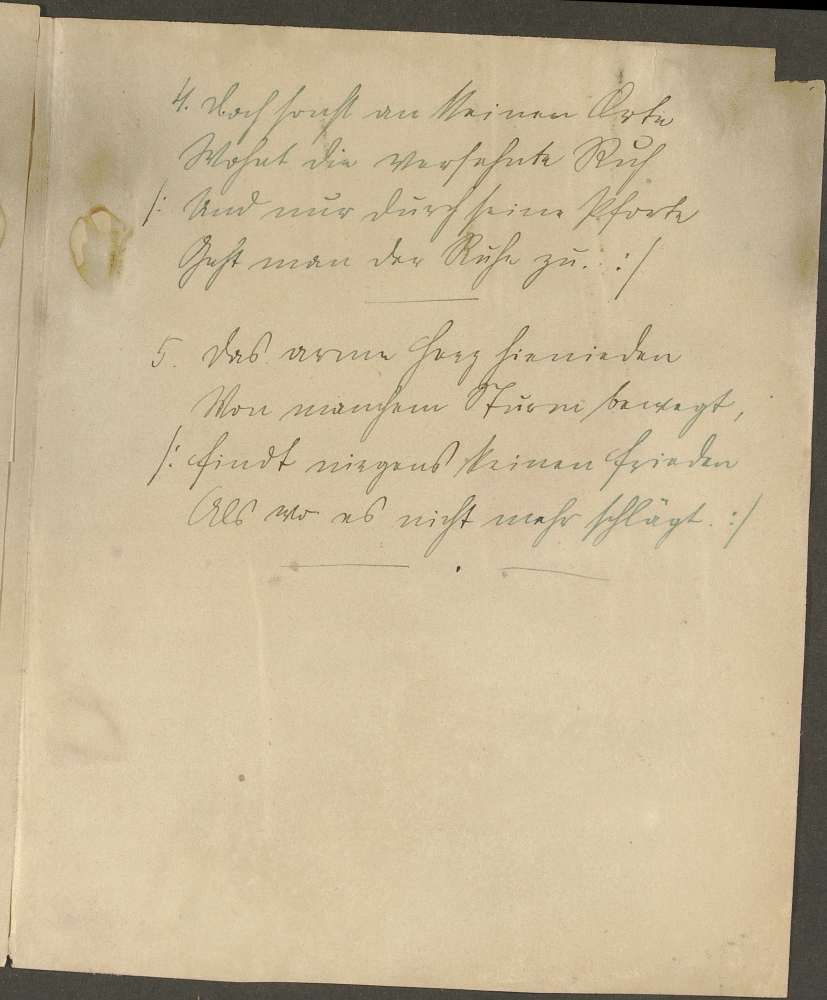 4. Doch sonst an keinen Orte
Wohnt die ersehnte Ruh
/: Und nur durch seine Pforte
Geht man der Ruhe zu. :/
5. Das arme Herz hienieden
Von manchem Sturm bewegt,
/: findt nirgens keinen Frieden
Als wo es nicht mehr schlägt. :/